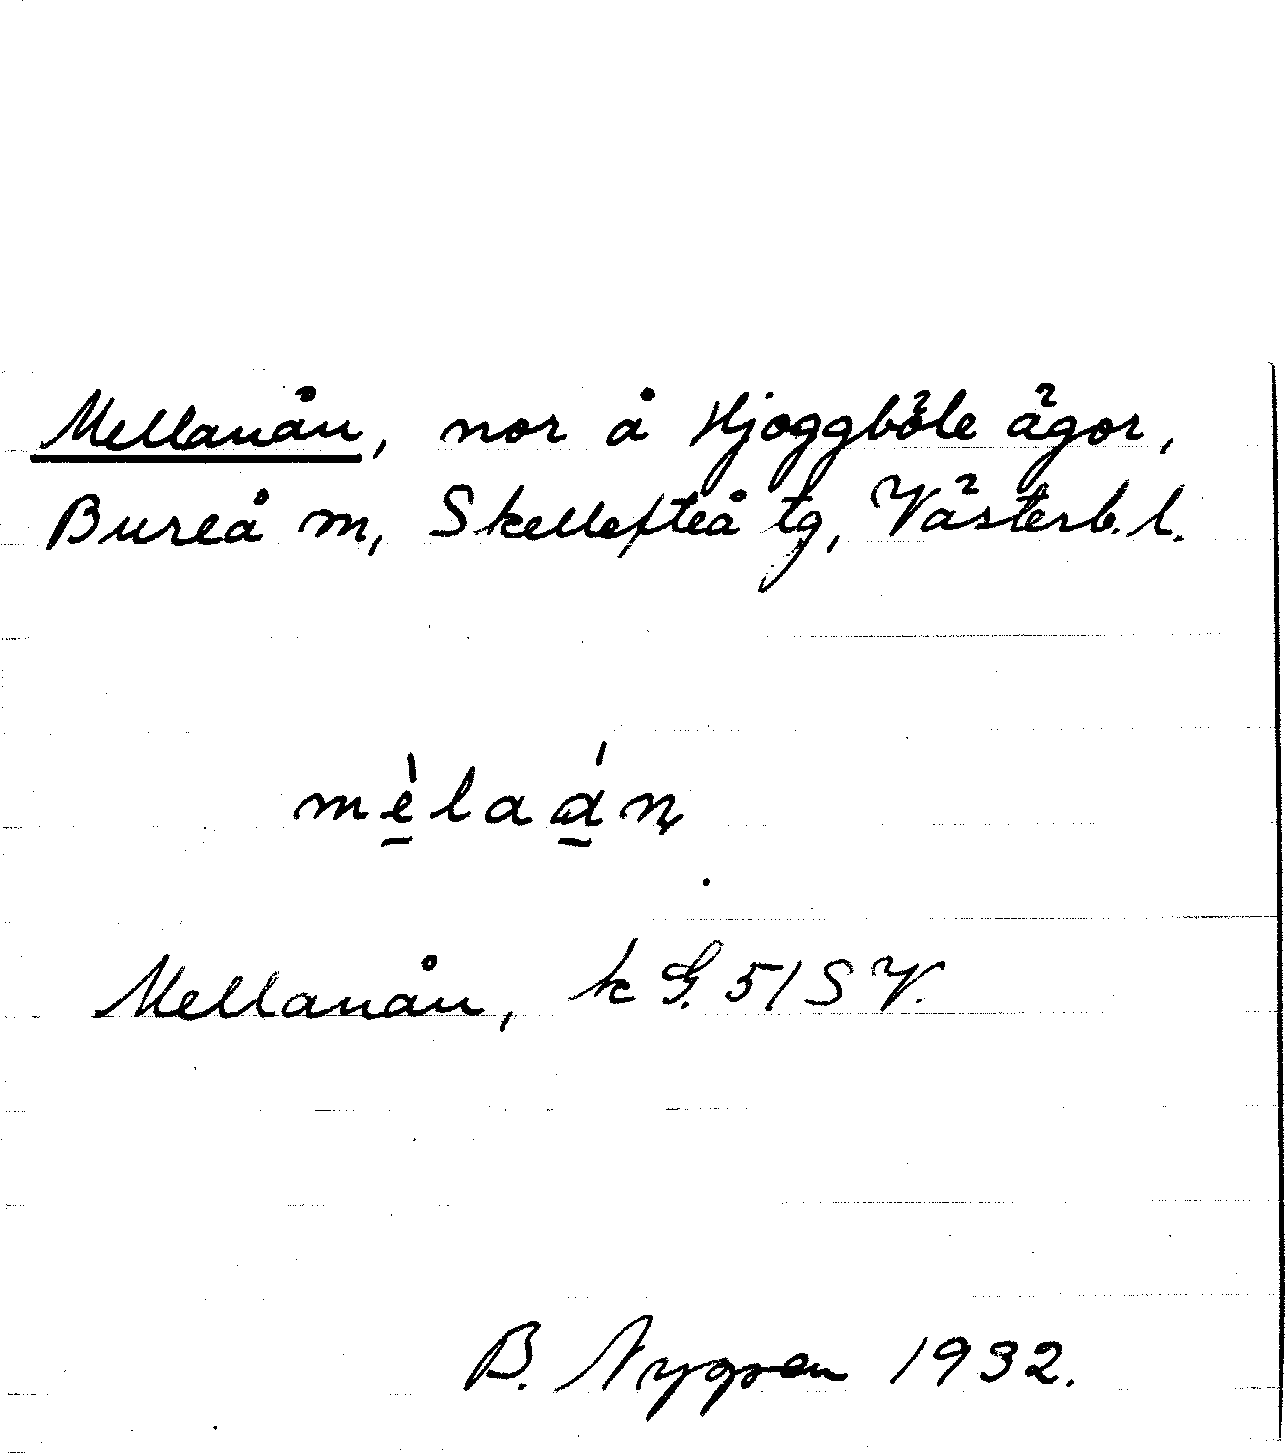 Mellanån, nor å Hjoggböle ägor,
Bureå m, Skellefteå tg, Västerb. l.
mèlaán
Mellanån, k G. 51 S V.
B. Nygren 1932.